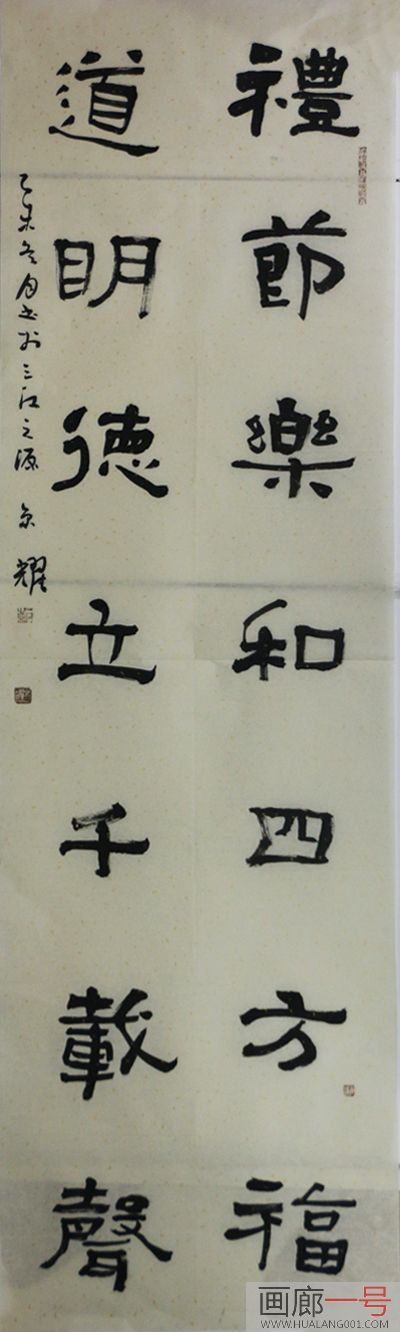 禮節樂和四方福
道明德立千載聲
乙未冬月书於三江之源 京耀
画廊一号
WWW.HUALANG001.COM